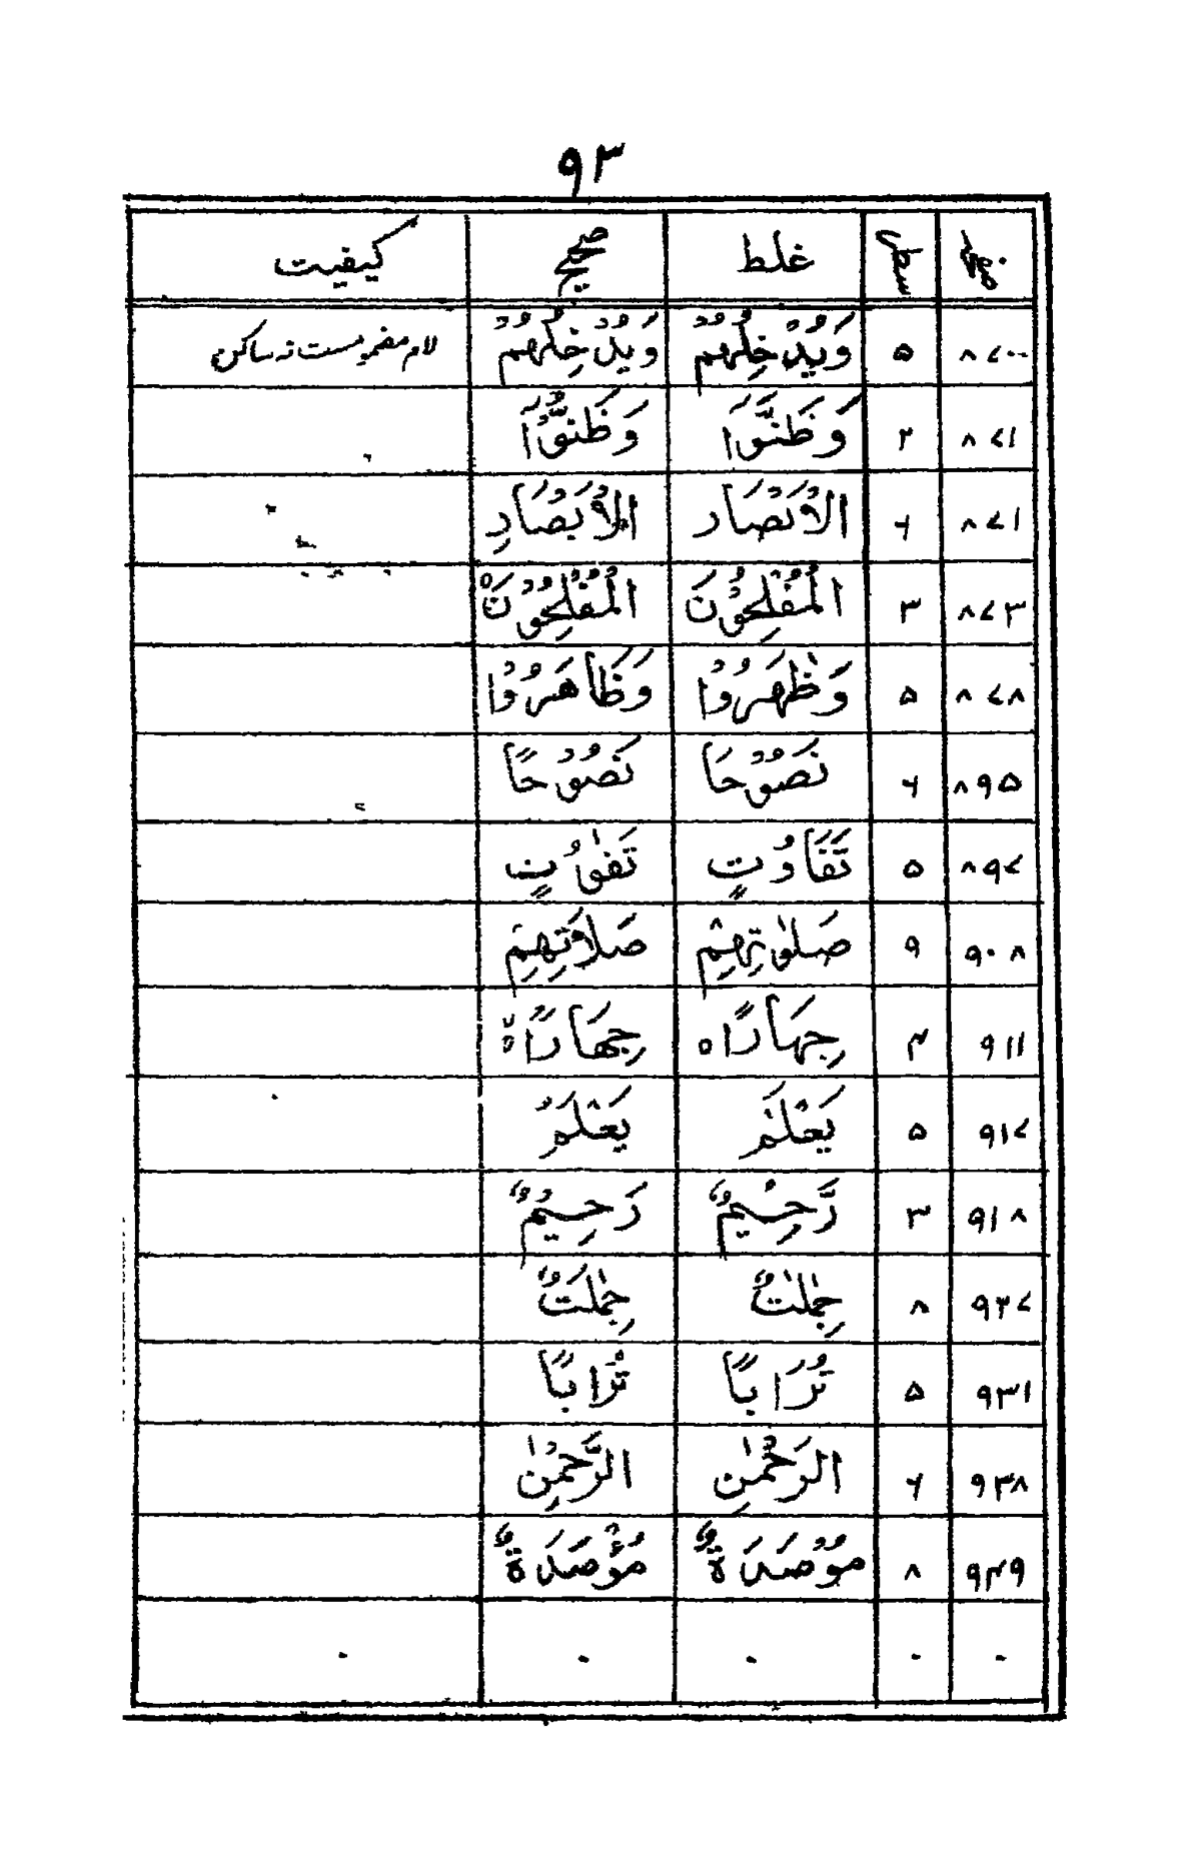 ۹۳
صفحہ سطر غلط صحیح کیفیت
۸۷۰ ۵ وَيُدْخِلْهُمْ وَيُدْخِلُهُمْ لام مضموم ست نہ ساکن
۸۷۱ ۲ وَظَنَّوَا وَظَنُّوَٓا
۸۷۱ ۶ الْاَنْصَار الْاَبْصَارِ
۸۷۳ ۳ الْمُفْلِحُوْنَ الْمُفْلِحُوْنَۚ
۸۷۸ ۵ وَظٰهَرُوْا وَظَاهَرُوْا
۸۹۵ ۶ نَصُوْحَا نَصُوْحًا
۸۹۷ ۵ تَفَاوُتٍ تَفٰوُتٍ
۹۰۸ ۹ صَلٰوتِهِمْ صَلَاتِهِمْ
۹۱۱ ۴ جِهَارًاہ جِهَارًاۃ
۹۱۷ ۵ يَعْلَمَ يَعْلَمُ
۹۱۸ ۳ رَّحِيْمٌ رَحِيْمٌ
۹۲۷ ۸ جِمٰلٰتٌ جِمٰلَتٌ
۹۳۱ ۵ تُرَابًا تُرٰبًا
۹۳۸ ۶ الرَحْمٰنِ الرَّحْمٰنِ
۹۴۹ ۸ مُوْصَدَةٌ مُؤْصَدَةٌ
۰ ۰ ۰ ۰ ۰